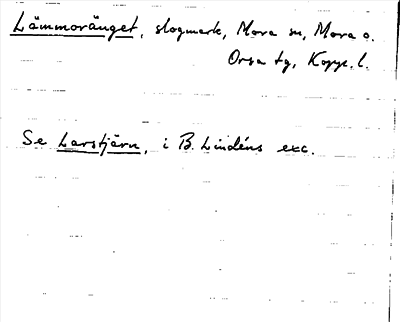 Lämmoränget, slogmark, Mora sn, Mora o.
Orsa tg, Kopp. l.
Se Larstjärn, i B. Lindéns exc.